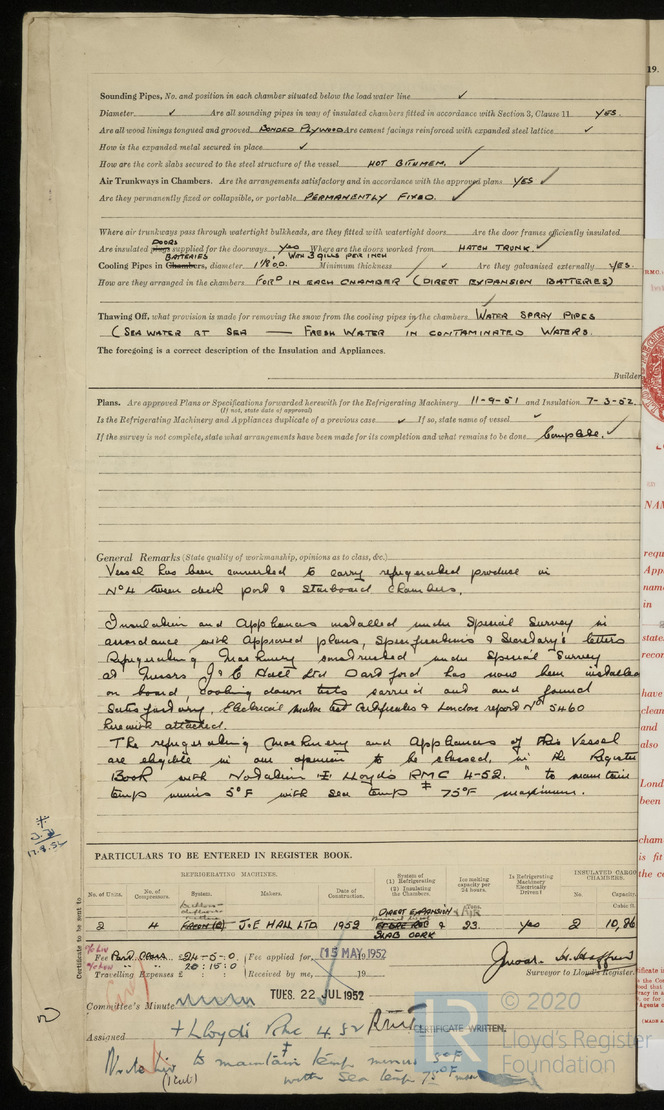 19.
Sounding Pipes, No. and position in each chamber situated below the load water line ✓
Diameter ✓ Are all sounding pipes in way of insulated chambers fitted in accordance with Section 3, Clause 11 YES.
Are all wood linings tongued and grooved BONDED PLYWOOD Are cement facings reinforced with expanded steel lattice ✓
How is the expanded metal secured in place ✓
How are the cork slabs secured to the steel structure of the vessel HOT BITUMEN. ✓
Air Trunkways in Chambers. Are the arrangements satisfactory and in accordance with the approved plans YES ✓
Are they permanently fixed or collapsible, or portable PERMANENTLY FIXED. ✓
Where air trunkways pass through watertight bulkheads, are they fitted with watertight doors Are the door frames efficiently insulated
DOORS
Are insulated plugs supplied for the doorways yes Where are the doors worked from HATCH TRUNK. ✓
BATTERIES WITH 3 GILLS PER INCH
Cooling Pipes in Chambers, diameter 1 1/8" O.D. Minimum thickness ✓ Are they galvanised externally YES.
How are they arranged in the chambers FOR'D IN EACH CHAMBER (DIRECT EXPANSION BATTERIES)
Thawing Off, what provision is made for removing the snow from the cooling pipes in the chambers WATER SPRAY PIPES
(SEA WATER AT SEA — FRESH WATER IN CONTAMINATED WATERS.
The foregoing is a correct description of the Insulation and Appliances.
Builder
Plans. Are approved Plans or Specifications forwarded herewith for the Refrigerating Machinery 11-9-51 and Insulation 7-3-52.
(If not, state date of approval)
Is the Refrigerating Machinery and Appliances duplicate of a previous case ✓ If so, state name of vessel ✓
If the survey is not complete, state what arrangements have been made for its completion and what remains to be done Complete. ✓
General Remarks (State quality of workmanship, opinions as to class, &c.)
Vessel has been converted to carry refrigerated produce in
No 4 tween deck port & starboard chambers.
Insulation and Appliances installed under Special Survey in
accordance with approved plans, Specifications & Secretary's letters
Refrigerating Machinery constructed under Special Survey
at Messrs J & E Hall Ltd Dartford has now been installed
on board, cooling down tests carried out and found
Satisfactory. Electrical motor test Certificates & London report No 5460
herewith attached.
The refrigerating Machinery and Appliances of this Vessel
are eligible in our opinion to be classed, in the Register
Book with Notation ‡ Lloyd's RMC 4-52. "to maintain
temp minus 5°F with sea temp 75°F maximum.
17.8.52
PARTICULARS TO BE ENTERED IN REGISTER BOOK.
REFRIGERATING MACHINES.
No. of Units. No. of Compressors. System. Makers. Date of Construction. System of (1) Refrigerating (2) Insulating the Chambers. Ice melting capacity per 24 hours. Is Refrigerating Machinery Electrically Driven? INSULATED CARGO CHAMBERS. No. Capacity.
Tons. Cubic ft.
DIRECT EXPANSION & AIR
2 4 FREON J & E HALL LTD 1952 SLAB CORK 23. yes 2
Certificate to be sent to
Fee £24-5-0 Fee applied for, 15 MAY 1952
20:15:0
Travelling Expenses £ : : Received by me, 19
Surveyor to Lloyd's Register.
TUES. 22 JUL 1952
Committee's Minute
Assigned + Lloyds RMC 4.52 CERTIFICATE WRITTEN.
to maintain temp minus 5°F
with sea temp 75°F max
© 2020
LR
Lloyd's Register
Foundation